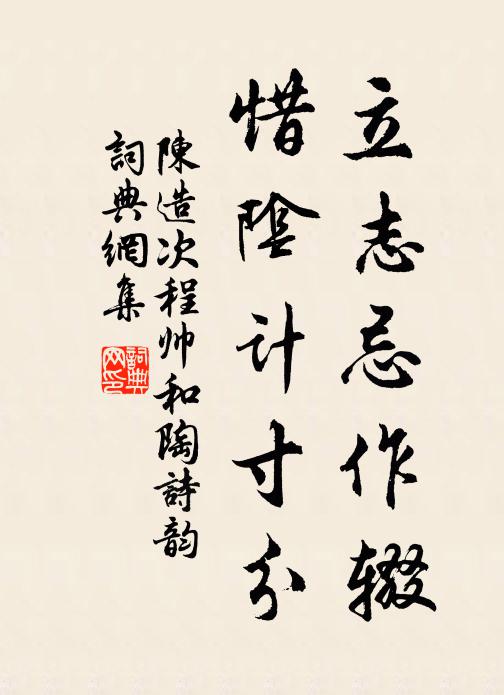 立志忌作辍
惜陰计寸分
陳造次程帅和陶詩韵
詞典網集
詞典网印